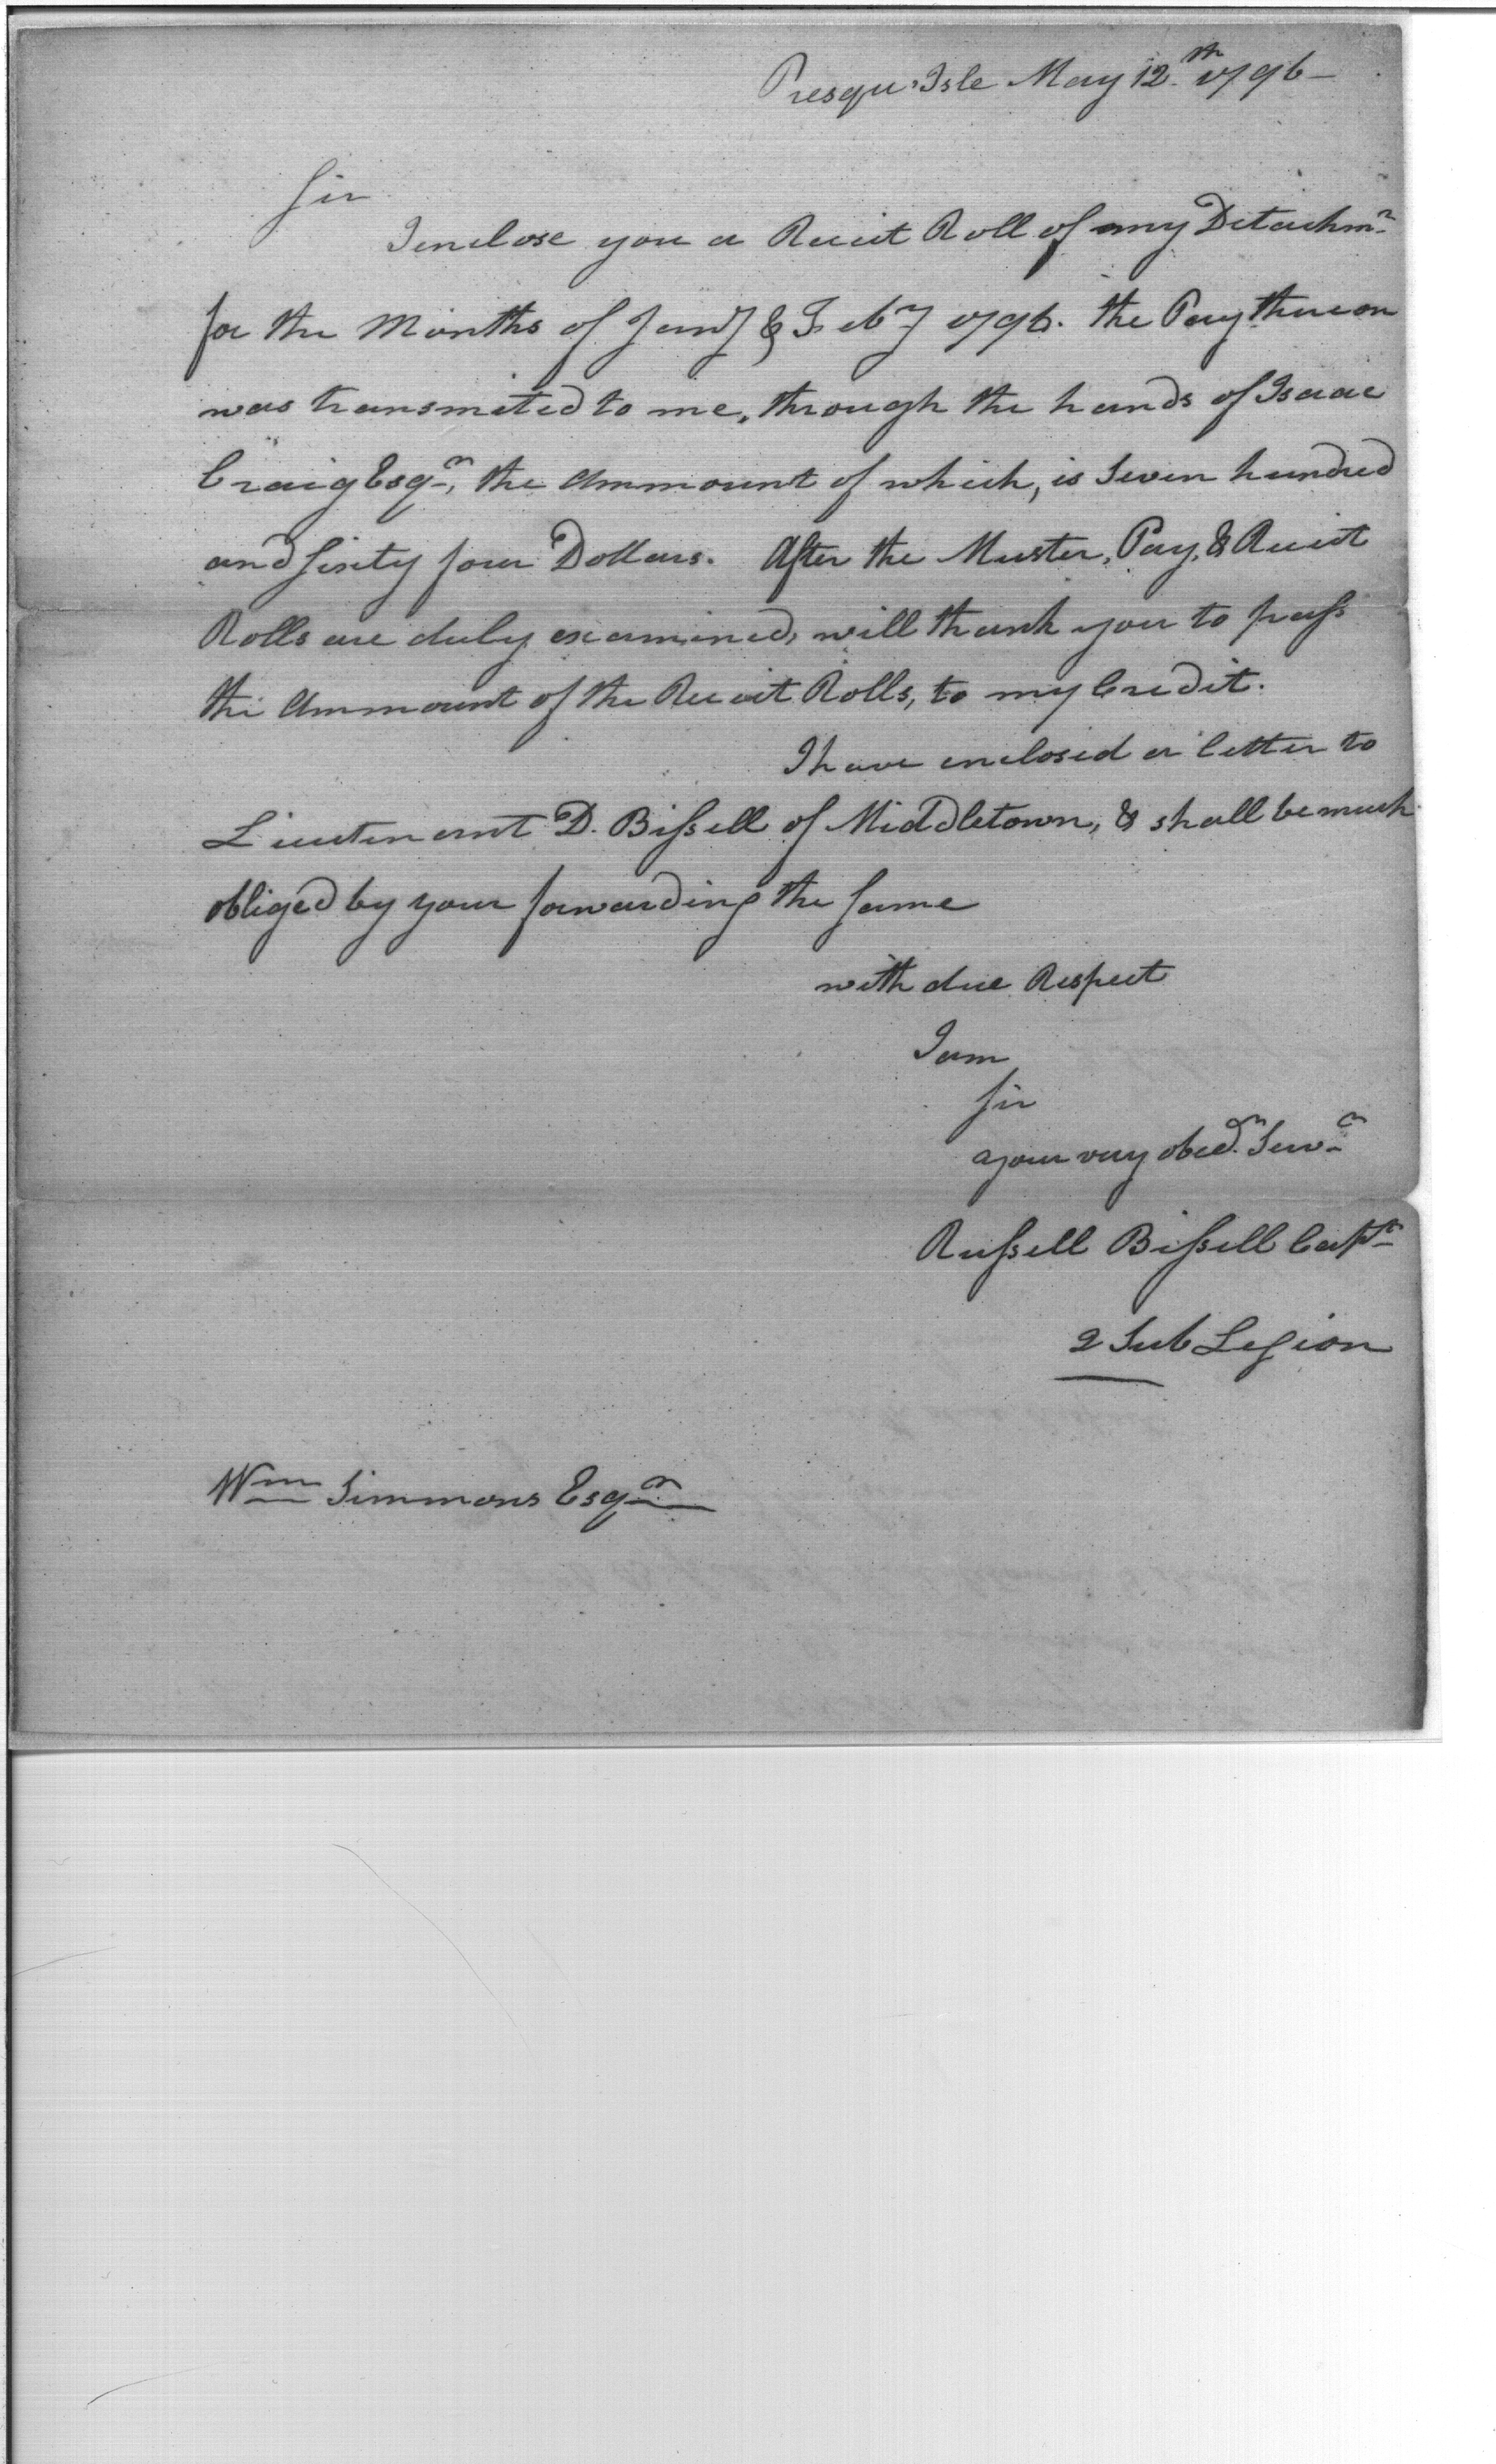 Presqu'Isle May 12th 1796
Sir
I enclose you a Receit Roll of my Detachmt
for the Months of Jany & Feby 1796. the Pay thereon
was transmited to me, through the hands of Isaac
Craig Esqr, the Ammount of which, is Seven hundred
and Sixty four Dollars. After the Muster, Pay, & Receit
Rolls are duly examined, will thank you to pass
the Ammount of the Receit Rolls, to my Credit.
I have enclosed a letter to
Lieutenant D. Bissell of Middletown, & shall be much
obliged by your forwarding the Same
with due Respect
I am
Sir
your very obedt Servt
Russell Bissell Captn
2 Sub Legion
Wm Simmons Esqr